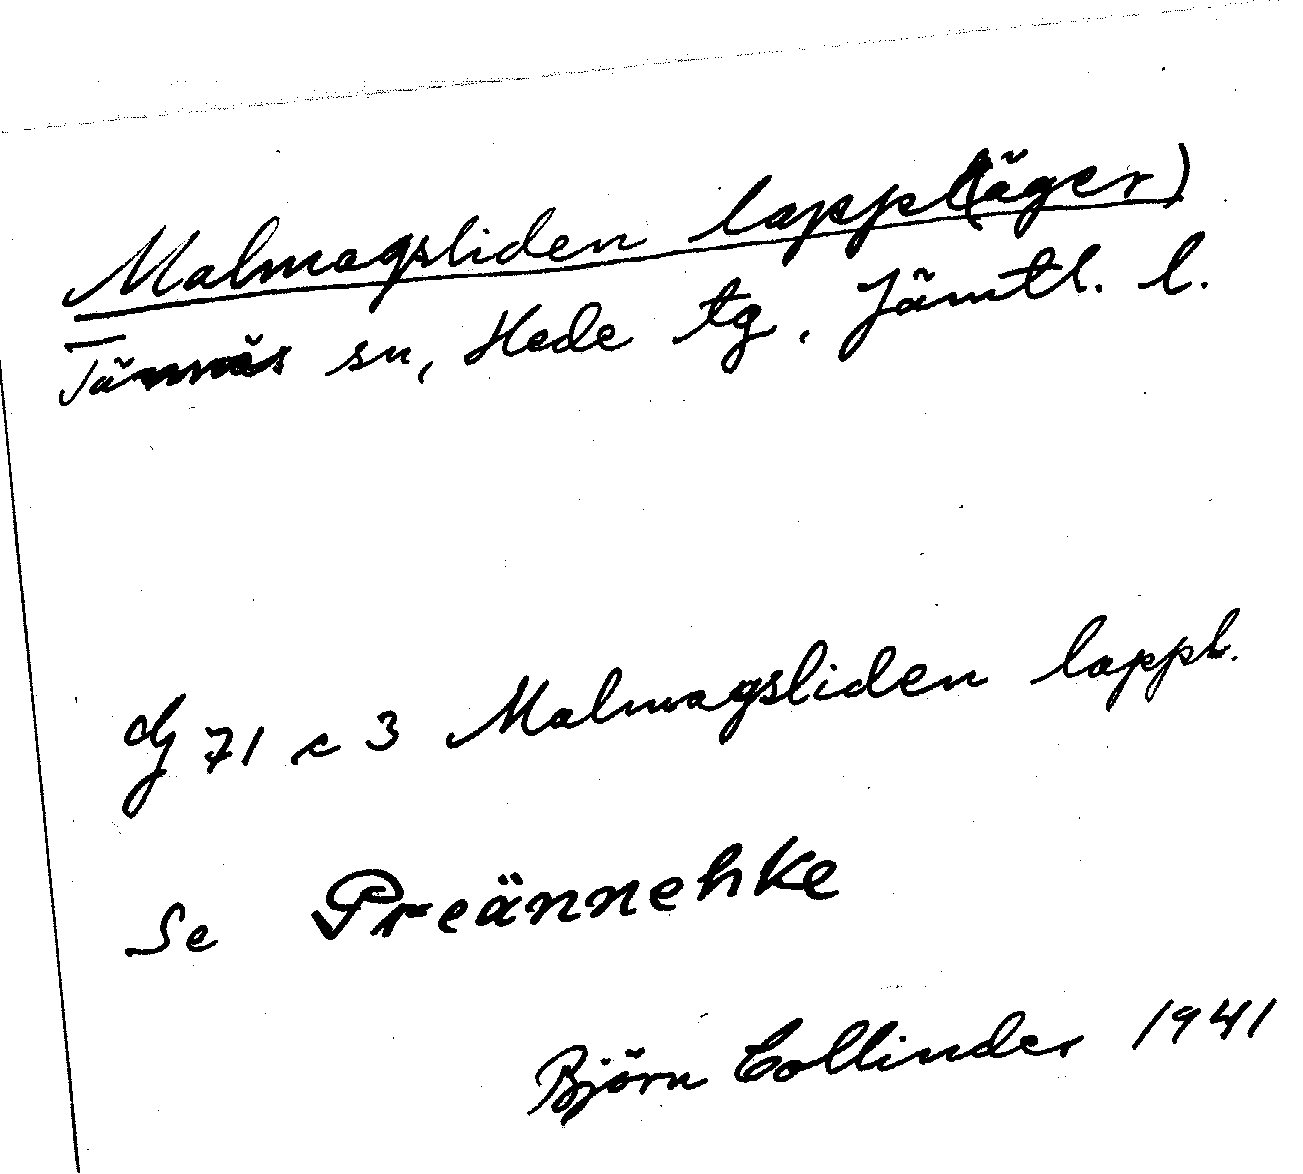 Malmagsliden lappl(äger)
Tännäs sn, Hede tg, Jämtl. l.
dj 71 c 3 Malmagsliden lappl.
Se Preännehke
Björn Collinder 1941